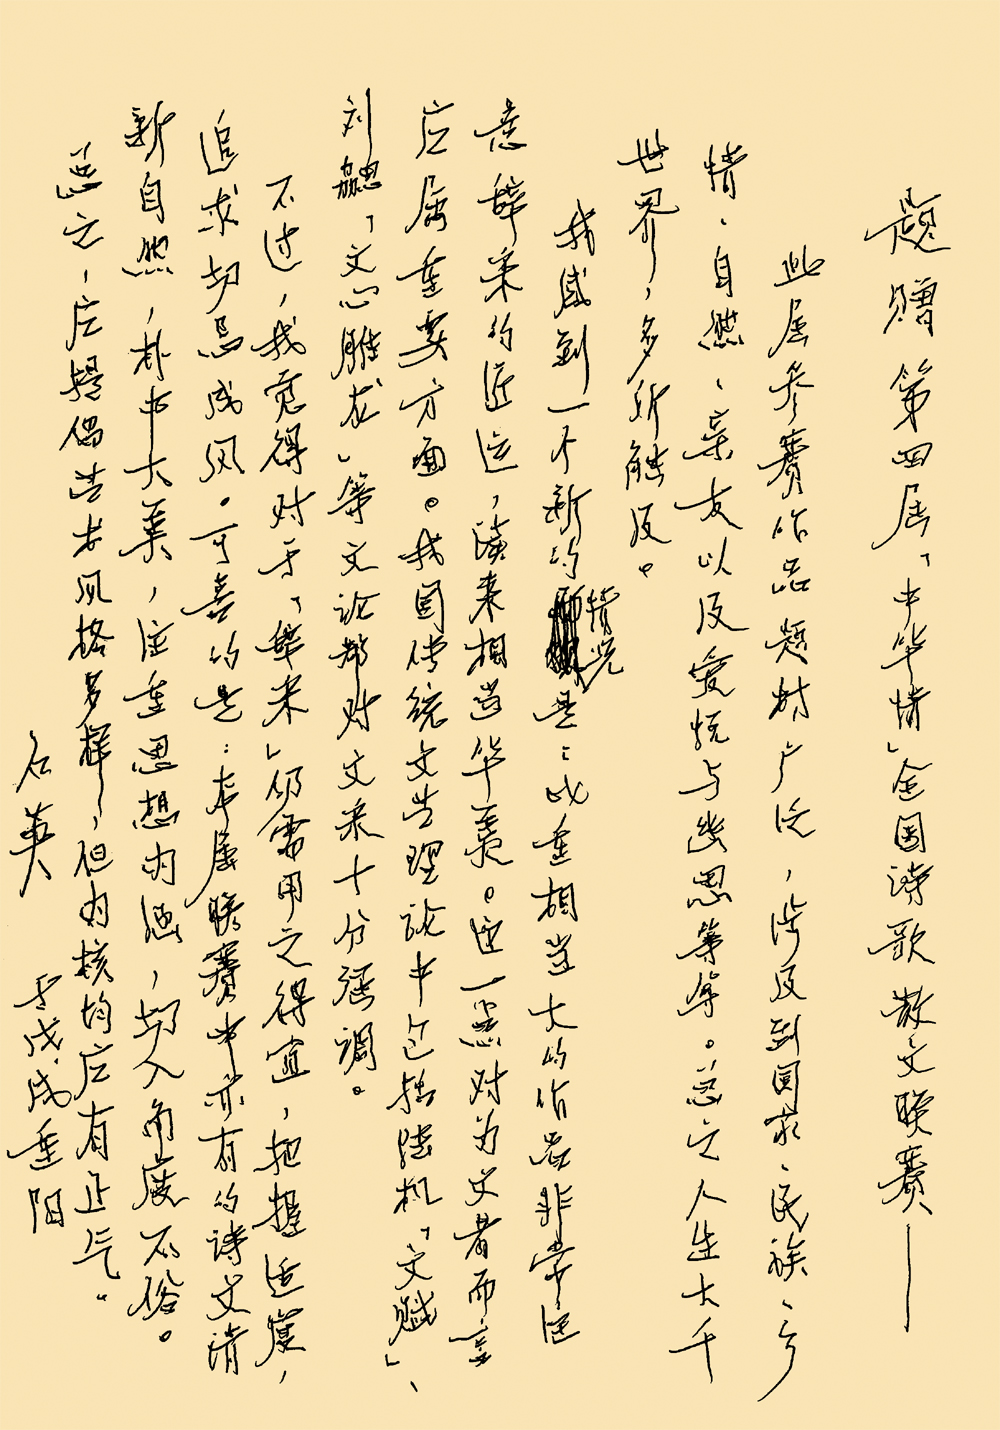 题赠第四届「中华情」全国诗歌散文联赛——
此届参赛作品题材广泛，涉及到国家、民族、乡
情、自然、亲友以及爱悦与幽思等等。总之人生大千
世界，多所触及。
我感到一个新的情况是：成重相当大的作者非常注
意辞采的运，读来相当华美。这一点对为文者而言
应属重要方面。我国传统文艺理论中包括陆机「文赋」、
刘勰「文心雕龙」等文论都对文采十分强调。
不过，我觉得对于「辞采」仍需用之得宜，把握适度，
追求切忌成风。可喜的是：本届联赛中亦有的诗文清
新自然，朴中大美，注重思想内涵，切入角度不俗。
总之，应提倡艺术风格多样，但内核均应有正气。
石英
戊戌重阳